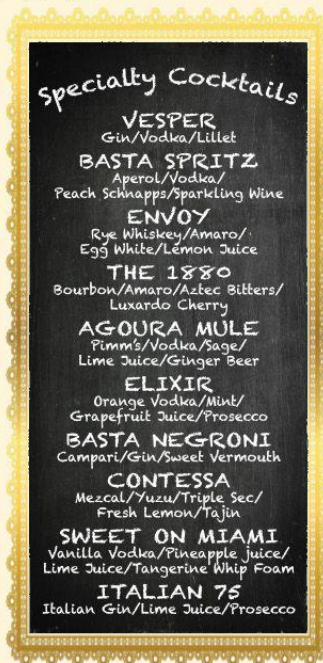 Specialty Cocktails
VESPER
Gin/Vodka/Lillet
BASTA SPRITZ
Aperol/Vodka/
Peach Schnapps/Sparkling Wine
ENVOY
Rye Whiskey/Amaro/
Egg White/Lemon Juice
THE 1880
Bourbon/Amaro/Aztec Bitters/
Luxardo Cherry
AGOURA MULE
Pimm's/Vodka/Sage/
Lime Juice/Ginger Beer
ELIXIR
Orange Vodka/Mint/
Grapefruit Juice/Prosecco
BASTA NEGRONI
Campari/Gin/Sweet Vermouth
CONTESSA
Mezcal/Yuzu/Triple Sec/
Fresh Lemon/Tajin
SWEET ON MIAMI
Vanilla Vodka/Pineapple juice/
Lime Juice/Tangerine Whip Foam
ITALIAN 75
Italian Gin/Lime Juice/Prosecco